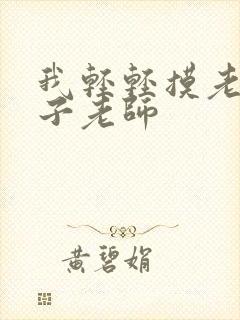 我輕輕摸老
子老師
黃碧娟